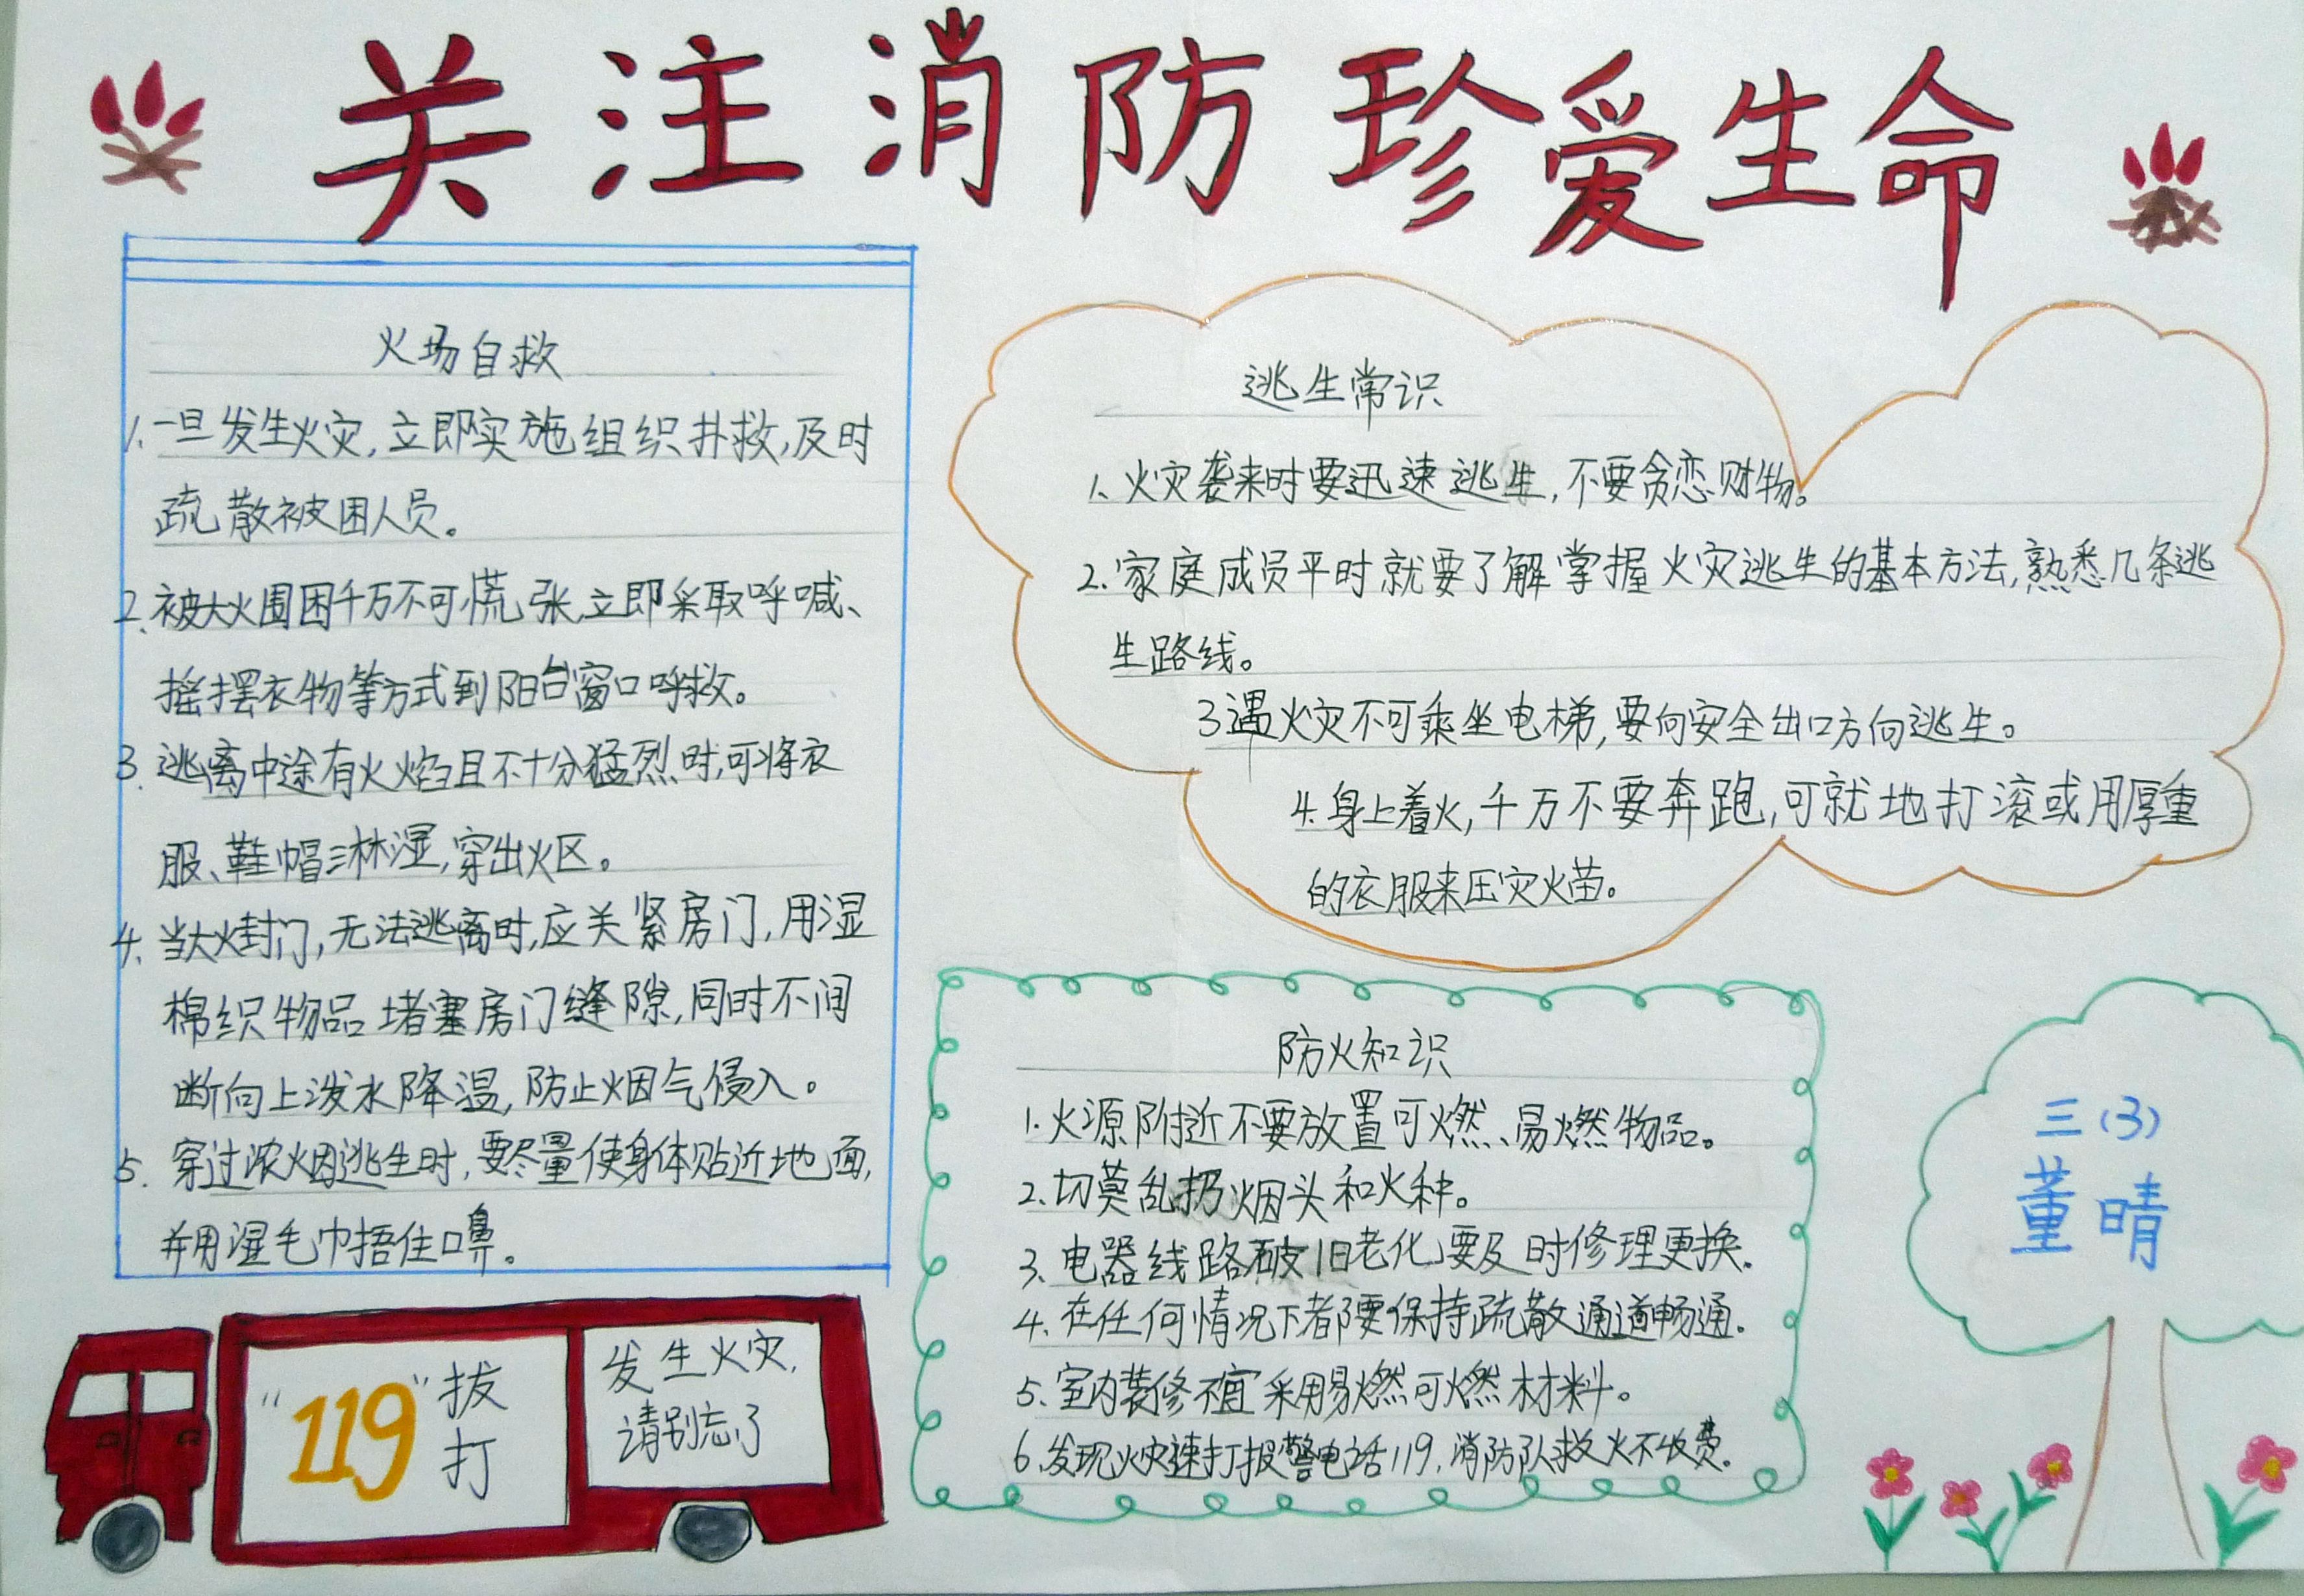 关注消防珍爱生命
火场自救
1.一旦发生火灾,立即实施组织扑救,及时
疏散被困人员。
2.被大火围困千万不可慌张,立即采取呼喊、
摇摆衣物等方式到阳台窗口呼救。
3.逃离中途有火焰且不十分猛烈时,可将衣
服、鞋帽淋湿,穿出火区。
4.当大火封门,无法逃离时,应关紧房门,用湿
棉织物品堵塞房门缝隙,同时不间
断向上泼水降温,防止烟气侵入。
5.穿过浓烟逃生时,要尽量使身体贴近地面,
并用湿毛巾捂住口鼻。
逃生常识
1、火灾袭来时要迅速逃生,不要贪恋财物。
2.家庭成员平时就要了解掌握火灾逃生的基本方法,熟悉几条逃
生路线。
3遇火灾不可乘坐电梯,要向安全出口方向逃生。
4.身上着火,千万不要奔跑,可就地打滚或用厚重
的衣服来压灾火苗。
防火知识
1.火源附近不要放置可燃、易燃物品。
2.切莫乱扔烟头和火种。
3、电器线路破旧老化,要及时修理更换.
4、在任何情况下都要保持疏散通道畅通.
5、室内装修不宜采用易燃可燃材料。
6、发现火灾速打报警电话119,消防队救火不收费.
三(3)
董晴
"119"拔
打
发生火灾,
请别忘了